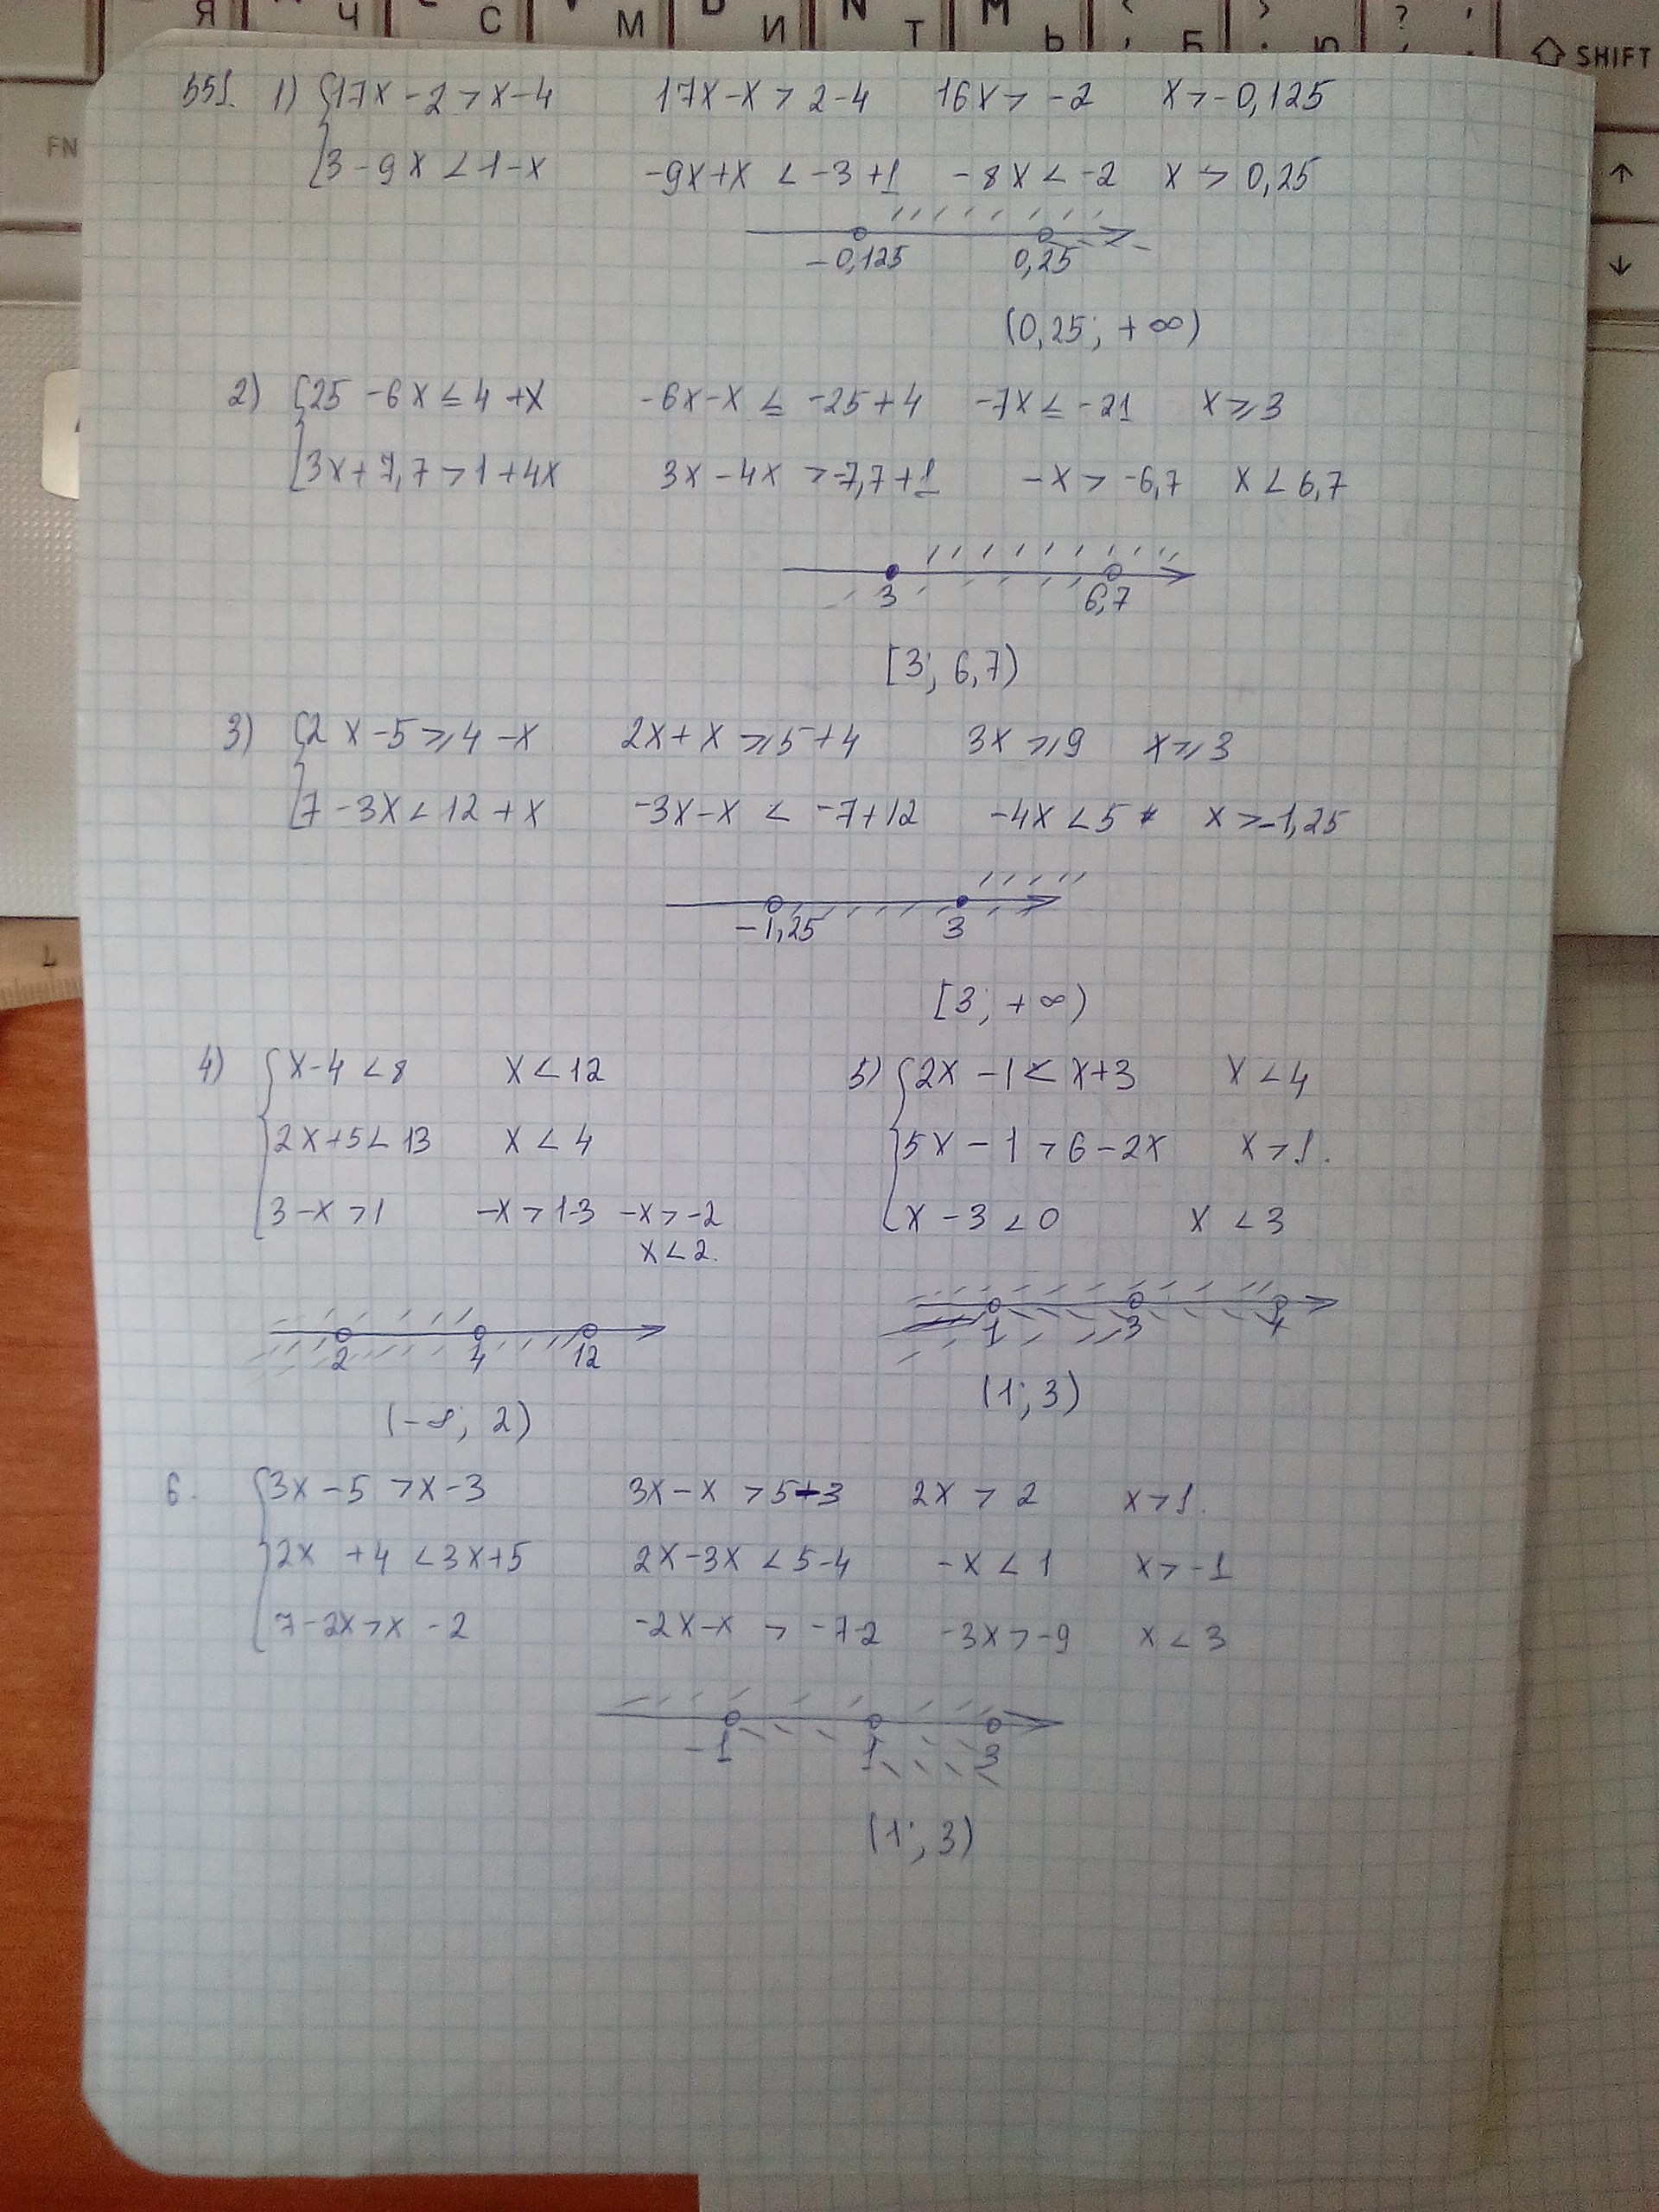 Я Ч С М И Т Ь Б Ю
N M < > ? , SHIFT
FN
551. 1) {17x - 2 > x - 4 17x - x > 2 - 4 16x > -2 x > -0,125
3 - 9x < 1 - x -9x + x < -3 + 1 -8x < -2 x > 0,25
-0,125 0,25
(0,25; +∞)
2) {25 - 6x ≤ 4 + x -6x - x ≤ -25 + 4 -7x ≤ -21 x ≥ 3
3x + 7,7 > 1 + 4x 3x - 4x > -7,7 + 1 -x > -6,7 x < 6,7
3 6,7
[3; 6,7)
3) {2x - 5 ≥ 4 - x 2x + x ≥ 5 + 4 3x ≥ 9 x ≥ 3
7 - 3x < 12 + x -3x - x < -7 + 12 -4x < 5 x > -1,25
-1,25 3
[3; +∞)
4) {x - 4 < 8 x < 12
2x + 5 < 13 x < 4
3 - x > 1 -x > 1-3 -x > -2
x < 2.
2 4 12
(-∞; 2)
5) {2x - 1 < x + 3 x < 4
5x - 1 > 6 - 2x x > 1.
x - 3 < 0 x < 3
1 3 4
(1; 3)
6. {3x - 5 > x - 3 3x - x > 5 - 3 2x > 2 x > 1.
2x + 4 < 3x + 5 2x - 3x < 5 - 4 -x < 1 x > -1
7 - 2x > x - 2 -2x - x > -7-2 -3x > -9 x < 3
-1 1 3
(1; 3)